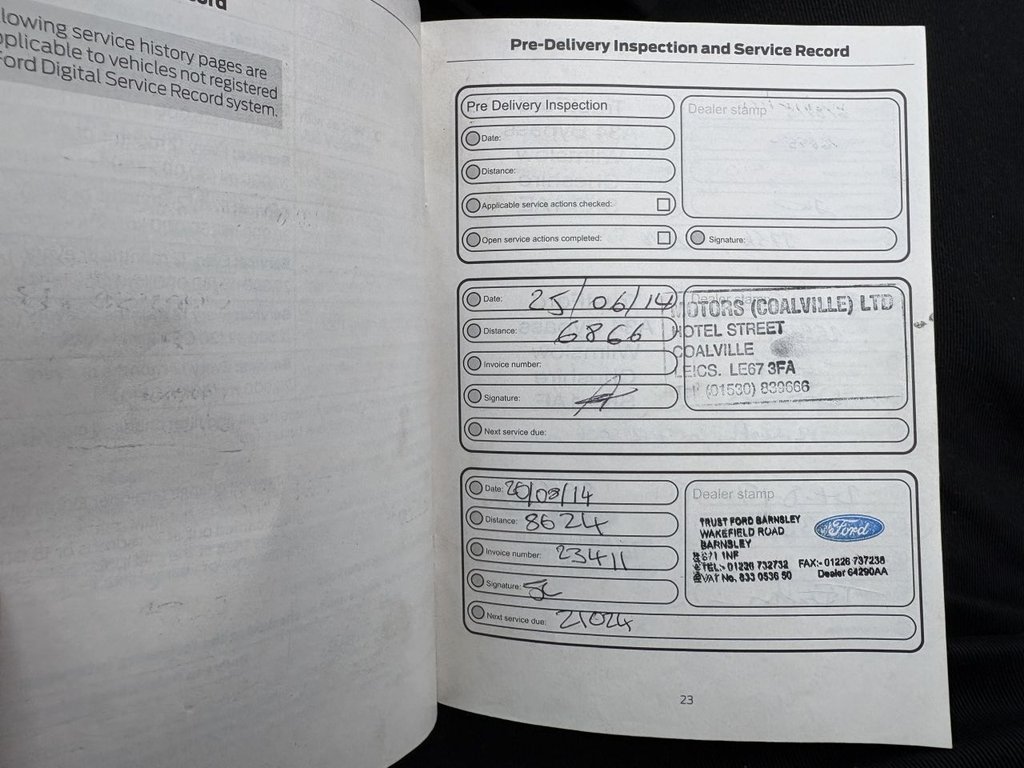 lowing service history pages are
plicable to vehicles not registered
Ford Digital Service Record system.
Pre-Delivery Inspection and Service Record
Pre Delivery Inspection
Dealer stamp
Date:
Distance:
Applicable service actions checked:
Open service actions completed:
Signature:
Date: 25/06/14
Distance: 6866
Invoice number:
Signature:
Next service due:
Dealer stamp
MOTORS (COALVILLE) LTD
HOTEL STREET
COALVILLE
LEICS. LE67 3FA
(01530) 839666
Date: 20/08/14
Distance: 8624
Invoice number: 23411
Signature:
Next service due: 21024
Dealer stamp
TRUST FORD BARNSLEY
WAKEFIELD ROAD
BARNSLEY
S71 1NF
TEL:- 01226 732732 FAX:- 01226 737238
VAT No. 833 0536 50 Dealer 64290AA
Ford
23